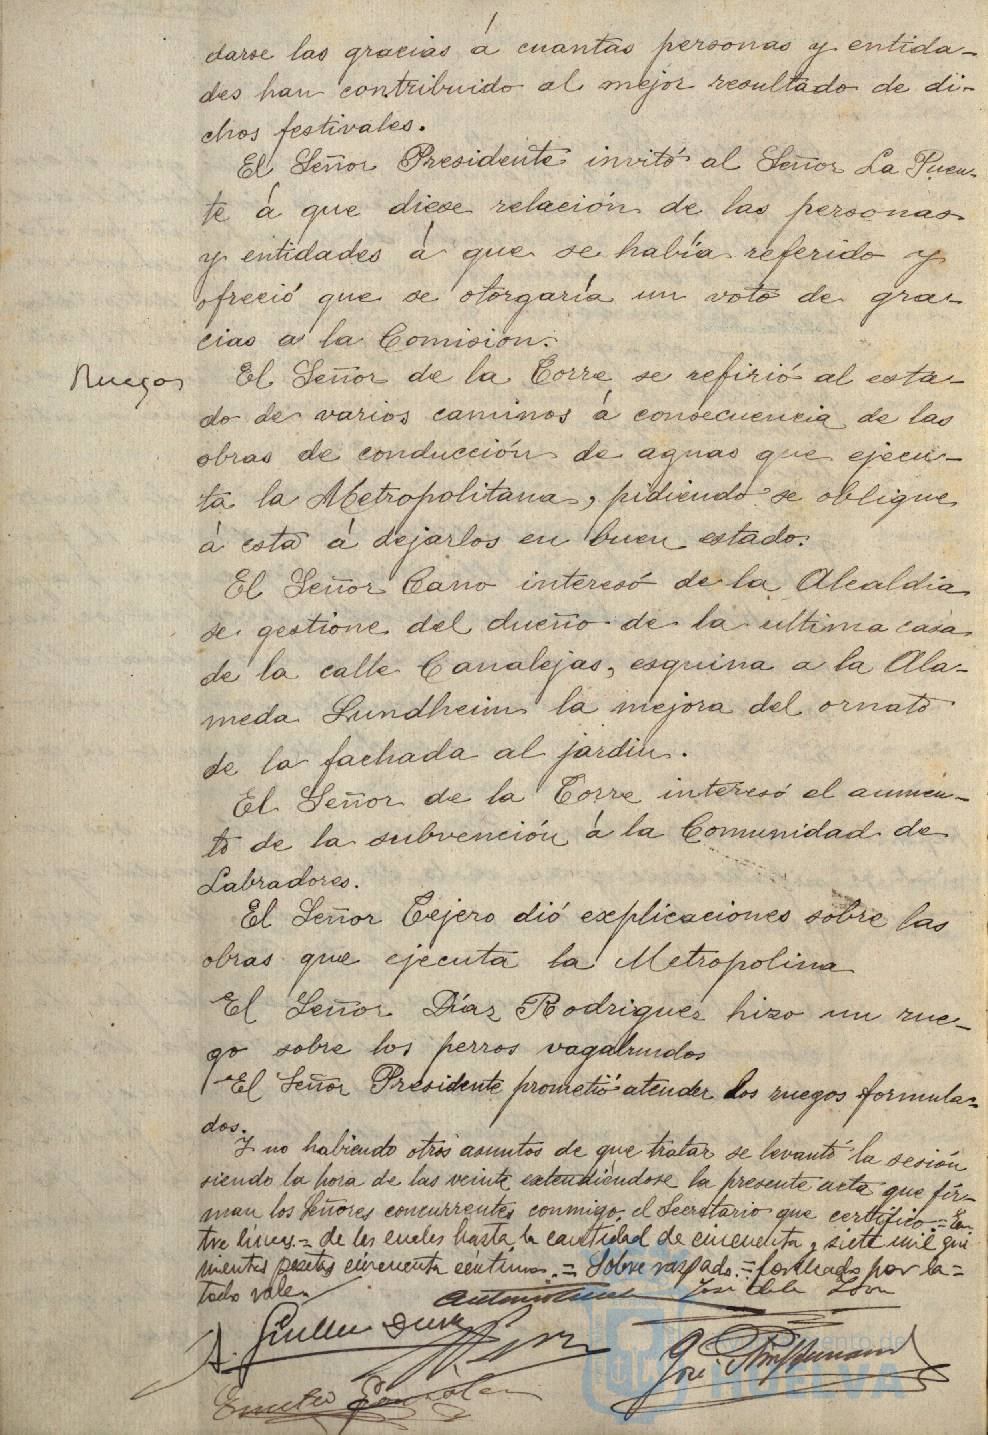 darse las gracias á cuantas personas y entida-
des han contribuido al mejor resultado de di-
chos festivales.
El Señor Presidente invitó al Señor La Puen-
te á que diese relación de las personas
y entidades á que se había referido y
ofreció que se otorgaría un voto de gra-
cias a la Comision.
Ruegos
El Señor de la Torre se refirió al esta-
do de varios caminos á consecuencia de las
obras de conducción de aguas que ejecu-
ta la Metropolitana, pidiendo se obligue
á esta á dejarlos en buen estado.
El Señor Cano interesó de la Alcaldía
se gestione del dueño de la ultima casa
de la calle Canalejas, esquina a la Ala-
meda Sundheim la mejora del ornato
de la fachada al jardin.
El Señor de la Torre interesó el aumen-
to de la subvención á la Comunidad de
Labradores.
El Señor Tejero dió explicaciones sobre las
obras que ejecuta la Metropolina
El Señor Díaz Rodriguez hizo un rue-
go sobre los perros vagabundos
El Señor Presidente prometió atender los ruegos formula-
dos.
Y no habiendo otros asuntos de que tratar se levantó la sesión
siendo la hora de las veinte extendiéndose la presente acta que fir-
man los Señores concurrentes conmigo el Secretario que certifico = En-
tre líneas = de los cuales hasta la cantidad de cincuenta y siete mil qui
nientas pesetas cincuenta céntimos. = Sobre raspado =
todo vale
José de la Torre
Guillen
José
Ayuntamiento de
HUELVA